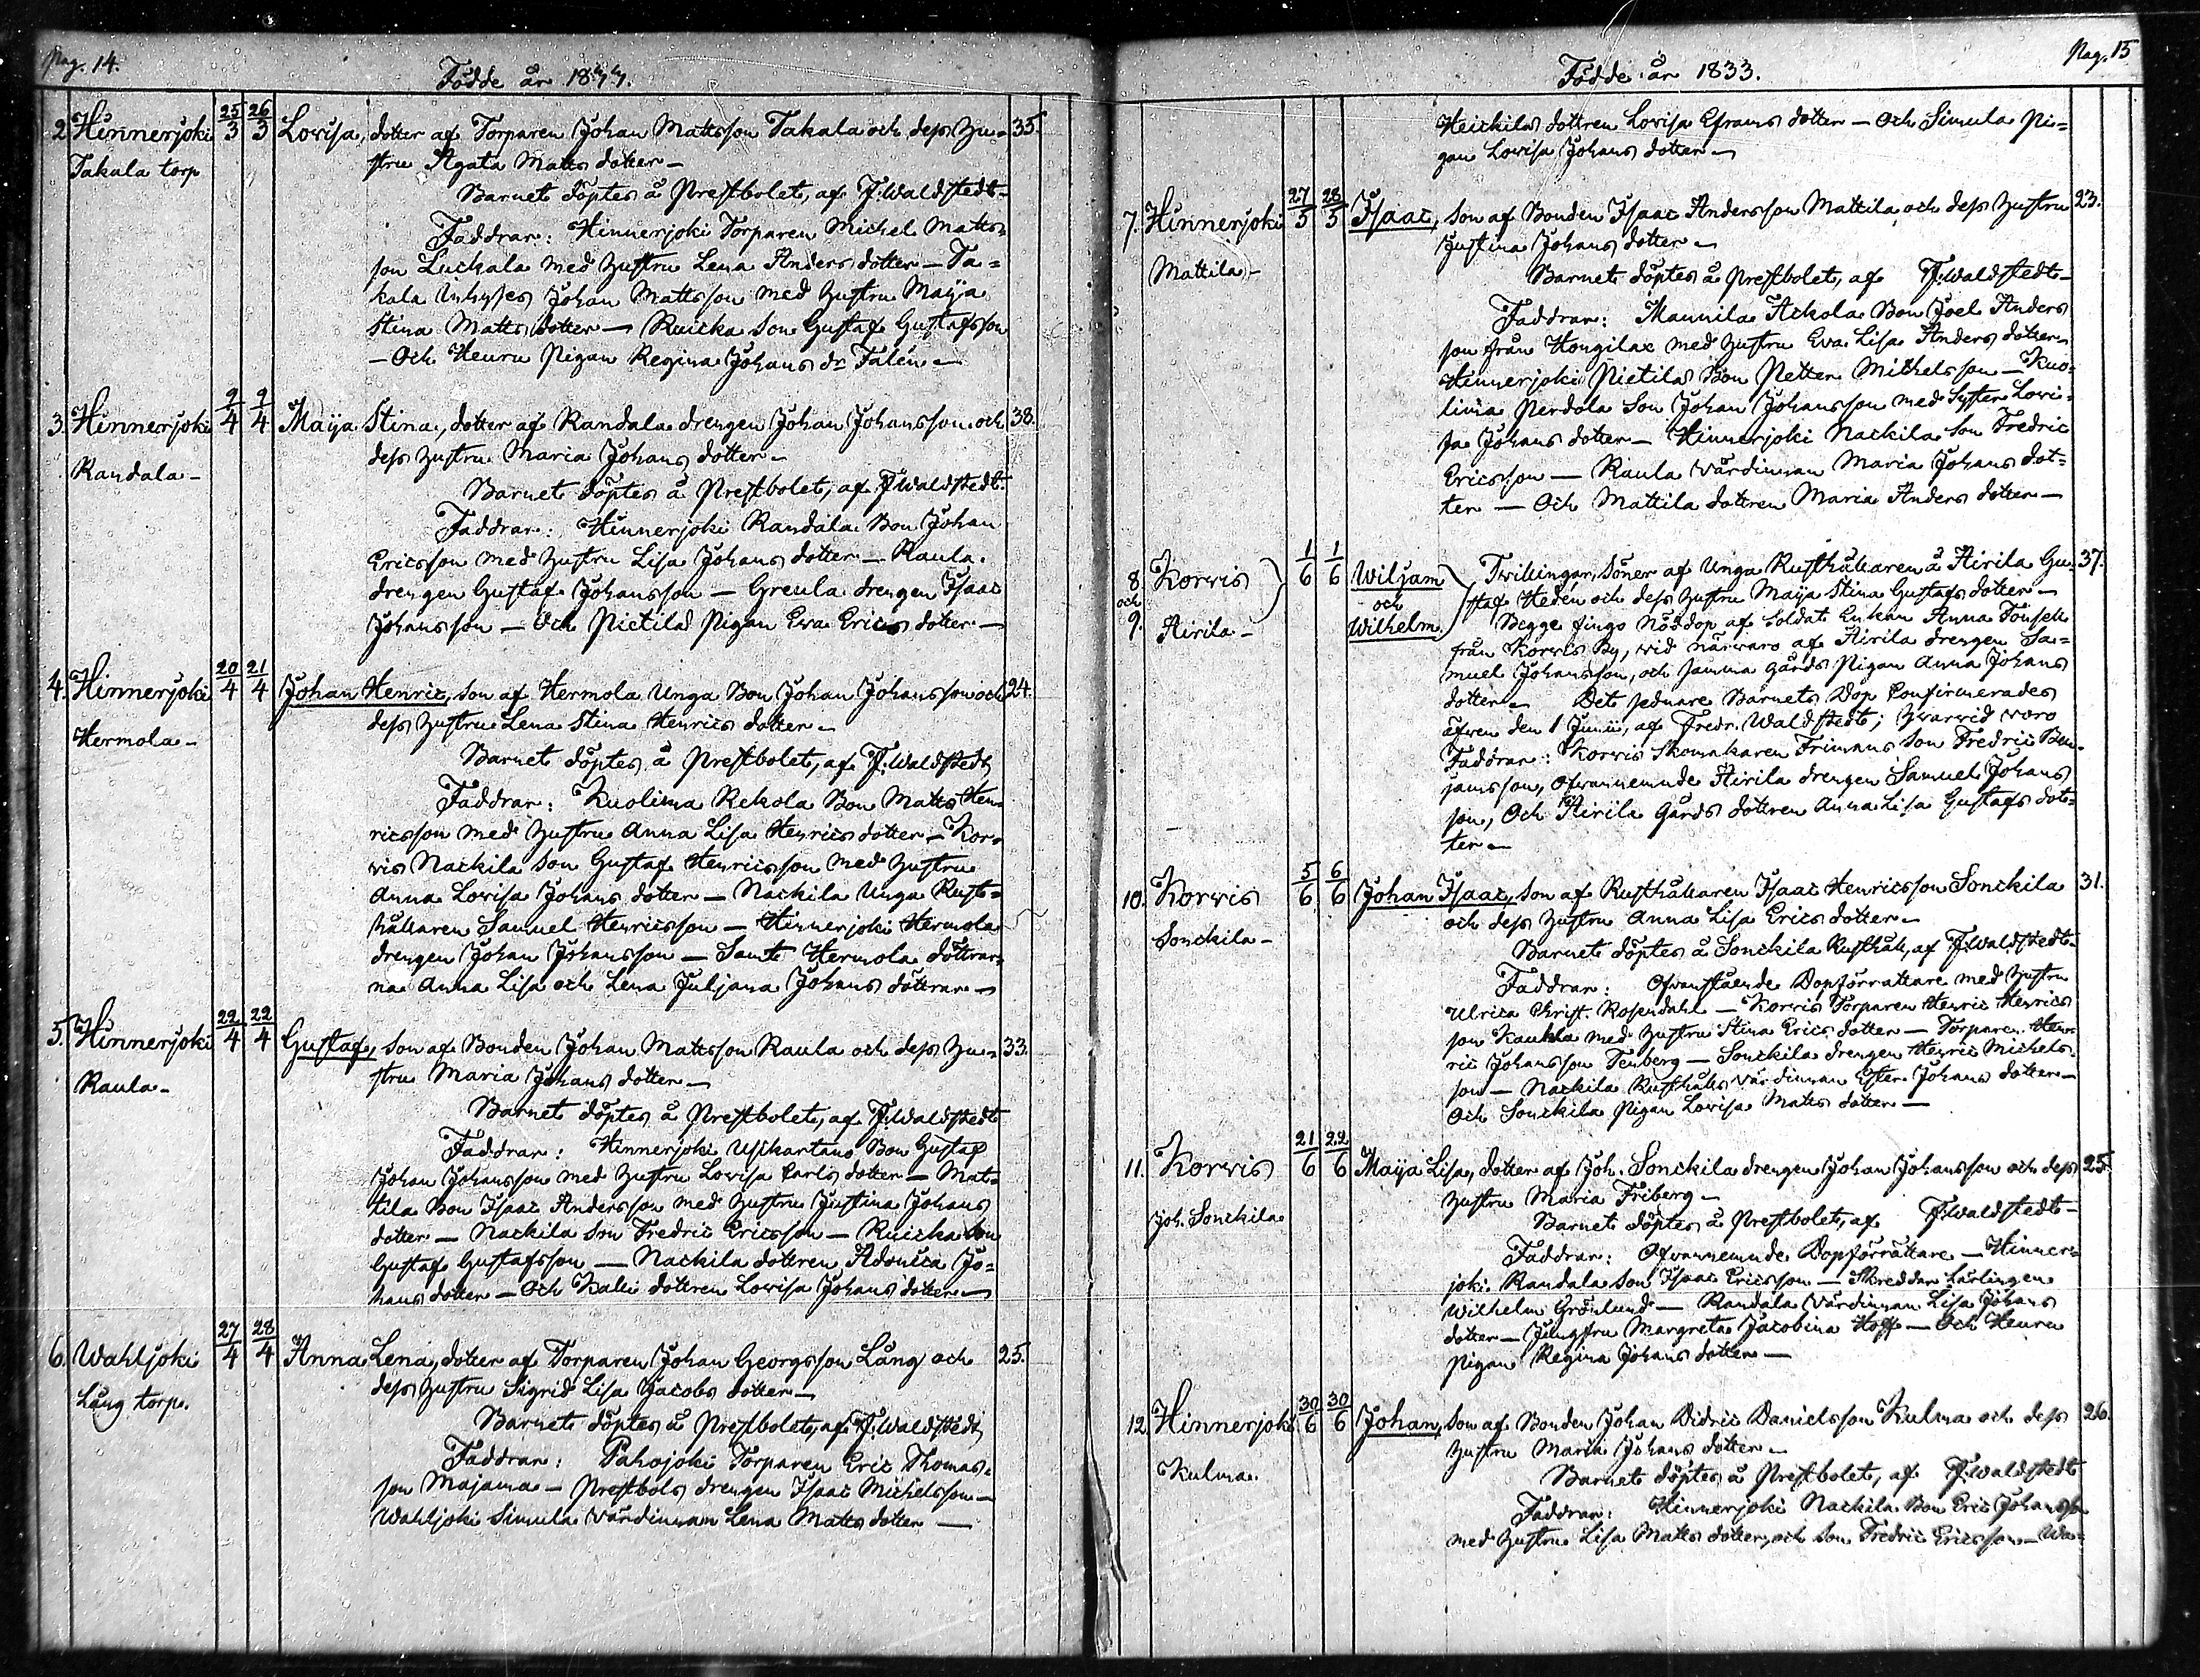 Pag. 14.
Födde år 1833.
2. Hinnerjoki 25/3 26/3 Lovisa, dotter af Torparen Johan Mattsson Takala och dess Hu= 35.
Takala torp stru Agata Matts dotter —
Barnet döptes å Prestbolet, af F. Waldstedt.
Faddrar: Hinnerjoki Torparen Michel Matts=
son Luckala med Hustru Lena Anders dotter — Ta=
kala Inhyses Johan Mattsson med Hustru Maija
Stina Matts dotter — Ruicka Son Gustaf Gustafsson
— Och Heuru Pigan Regina Johans dr Talén —
3. Hinnerjoki 9/4 9/4 Maija Stina, dotter af Randala drengen Johan Johansson och 38.
Randala — dess Hustru Maria Johans dotter —
Barnet döptes å Prestbolet, af F. Waldstedt.
Faddrar: Hinnerjoki Randala Bon Johan
Ericsson med Hustru Lisa Johans dotter — Raula
drengen Gustaf Johansson — Greula drengen Isaac
Johansson — Och Pietilä Pigan Eva Erics dotter —
4. Hinnerjoki 20/4 21/4 Johan Henric, son af Hermola Unga Bon Johan Johansson och 24.
Hermola — dess Hustru Lena Stina Henrics dotter —
Barnet döptes å Prestbolet, af F. Waldstedt
Faddrar: Kuolima Rekola Bon Matts Hen=
ricsson med Hustru Anna Lisa Henrics dotter — Kor=
vis Nackila Son Gustaf Henricsson med Hustru
Anna Lovisa Johans dotter — Nackila Unga Rust=
hållaren Samuel Henricsson — Hinnerjoki Hermola
drengen Johan Johansson — Samt Hermola döttrar=
na Anna Lisa och Lena Juljana Johans döttrar —
5. Hinnerjoki 22/4 22/4 Gustaf, Son af Bonden Johan Mattsson Raula och dess Hu= 33.
Raula — stru Maria Johans dotter —
Barnet döptes å Prestbolet, af F. Waldstedt
Faddrar: Hinnerjoki Usikartano Bon Gustaf
Johan Johansson med Hustru Lovisa Carls dotter — Mat=
tila Bon Isaac Andersson med Hustru Justina Johans
dotter — Nackila Son Fredric Ericsson — Ruicka Son
Gustaf Gustafsson — Nackila dottren Adonica Jo=
hans dotter — Och Kalli dottren Lovisa Johans dotter —
6. Wahljoki 27/4 28/4 Anna Lena, dotter af Torparen Johan Georgsson Lång och 25.
Lång torp. dess Hustru Sigrid Lisa Jacobs dotter —
Barnet döptes å Prestbolet, af F. Waldstedt
Faddrar: Pahojoki Torparen Eric Thomas=
son Majama — Prestbols drengen Isaac Michelsson —
Wahljoki Simula Värdinnan Lena Matts dotter —
Pag. 15
Födde år 1833.
Heickilä dottren Lovisa Efraims dotter — Och Simula Pi=
gan Lovisa Johans dotter —
7. Hinnerjoki 27/5 28/5 Isaac, Son af Bonden Isaac Andersson Mattila och dess Hustru 23.
Mattila — Justina Johans dotter —
Barnet döptes å Prestbolet, af F. Waldstedt —
Faddrar: Mannila Ackola Bon Joel Anders
son från Hongilax med Hustru Eva Lisa Anders dotter
Hinnerjoki Pietilä Bon Petter Michelsson — Kuo=
lima Perdola Son Johan Johansson med Syster Lovi=
sa Johans dotter — Hinnerjoki Nackila Son Fredric
Ericsson — Raula värdinnan Maria Johans dot=
ter — Och Mattila dottren Maria Anders dotter —
8 och 9. Korvis 1/6 1/6 Wiljam och Wilhelm Twillingar, Söner af Unga Rusthållaren å Airila Gu= 37.
Airila — staf Hedén och dess Hustru Maija Stina Gustafs dotter —
Begge fingo Nöddop af Soldat Enkan Anna Fönsel
från Korvis By, vid närvaro af Airila drengen Sa=
muel Johansson, och samma gårds Pigan Anna Johans
dotter — Det sednare Barnets Dop Confirmerades
äfven den 1 Junii, af Fredr. Waldstedt; Hvarvid voro
Faddrar: Korvis Skomakaren Frimans Son Fredric Ben=
jamsson, Ofvannemnde Airila drengen Samuel Johans
son, Och Airila Gårds dottren Anna Lisa Gustafs dot=
ter —
10. Korvis 5/6 6/6 Johan Isaac, Son af Rusthållaren Isaac Henricsson Sonckila 31.
Sonckila — och dess Hustru Anna Lisa Erics dotter —
Barnet döptes å Sonckila Rusthåll, af F. Waldstedt —
Faddrar: Ofvanstående Dopförrättare med Hustru
Ulrica Christ. Rosendahl — Korvis Torparen Henric Henrics
son Kaukla med Hustru Stina Erics dotter — Torparen Hen=
ric Johansson Tenberg — Sonckila drengen Henric Michels=
son — Nackila Rusthålls Värdinnan Ester Johans dotter —
Och Sonckila Pigan Lovisa Matts dotter —
11. Korvis 21/6 22/6 Maija Lisa, dotter af Joh. Sonckila drengen Johan Johansson och dess 25.
Joh. Sonckila Hustru Maria Friberg —
Barnet döptes å Prestbolet, af F. Waldstedt —
Faddrar: Ofvannemnde Dopförrättare — Hinner=
joki Randala Son Isaac Ericsson — Skreddar Lärlingen
Wilhelm Grönlund — Randala Värdinnan Lisa Johans
dotter — Jungfru Margreta Jacobina Hoff — Och Heuru
Pigan Regina Johans dotter —
12. Hinnerjoki 30/6 30/6 Johan, Son af Bonden Johan Didric Danielsson Kulma och dess 26.
Kulma. Hustru Maria Johans dotter —
Barnet döptes å Prestbolet, af F. Waldstedt
Faddrar: Hinnerjoki Nackila Bon Eric Johansson
med Hustru Lisa Matts dotter, och Son Fredric Ericsson — Wa=